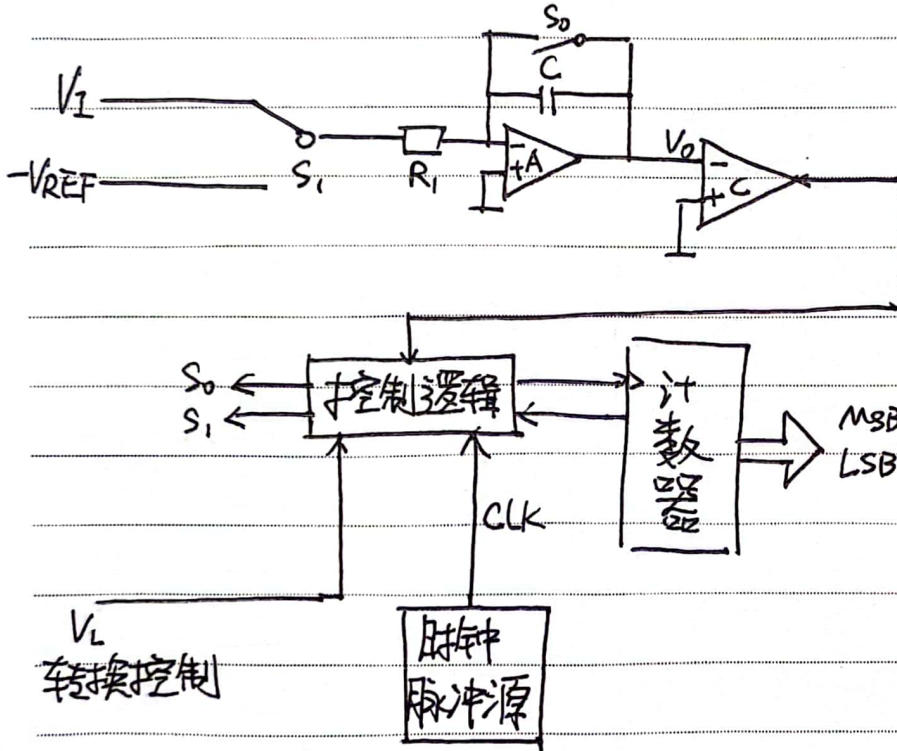 S₀
C
V_I
S₁
R₁
-
+
A
V₀
-
+
C
-V_REF
S₀
S₁
控制逻辑
计
数
器
MSB
LSB
CLK
V_L
转换控制
时钟
脉冲源